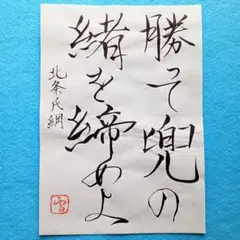 勝って兜の
緒を締めよ
北条氏綱